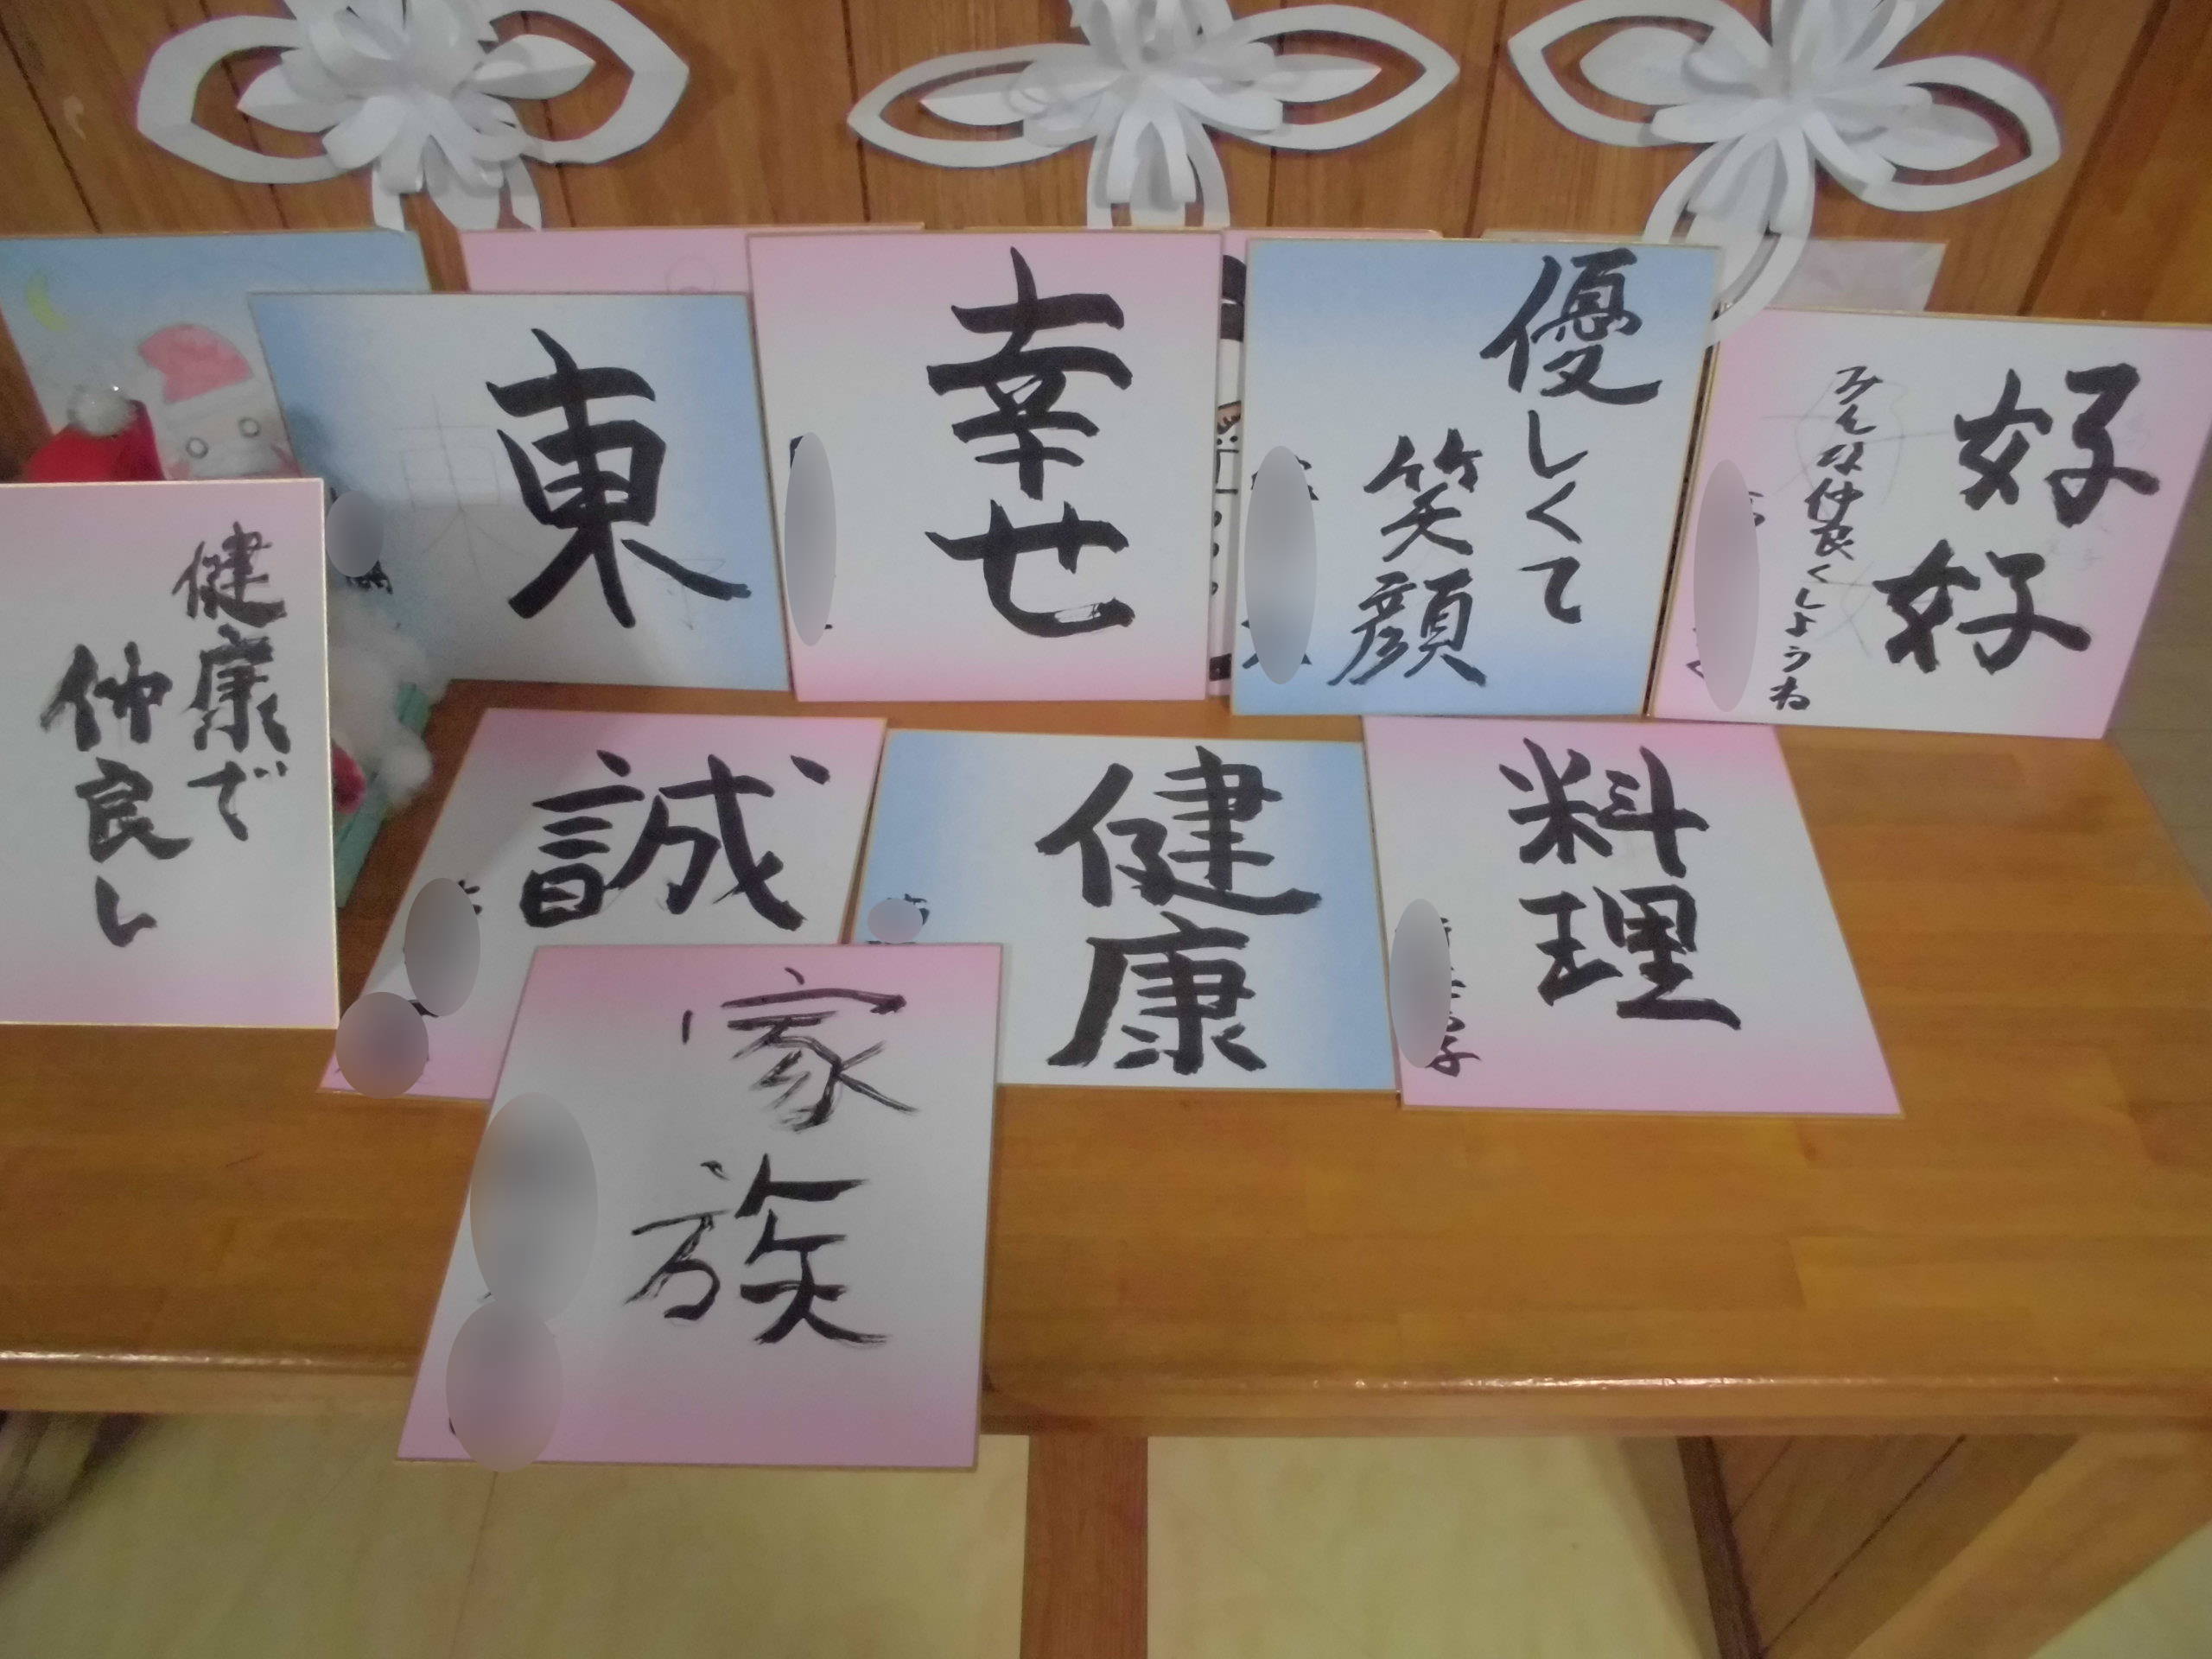 東
幸せ
優しくて
笑顔
好
好
みんな仲良くしようね
健康で
仲良し
誠
健康
料理
子
家族